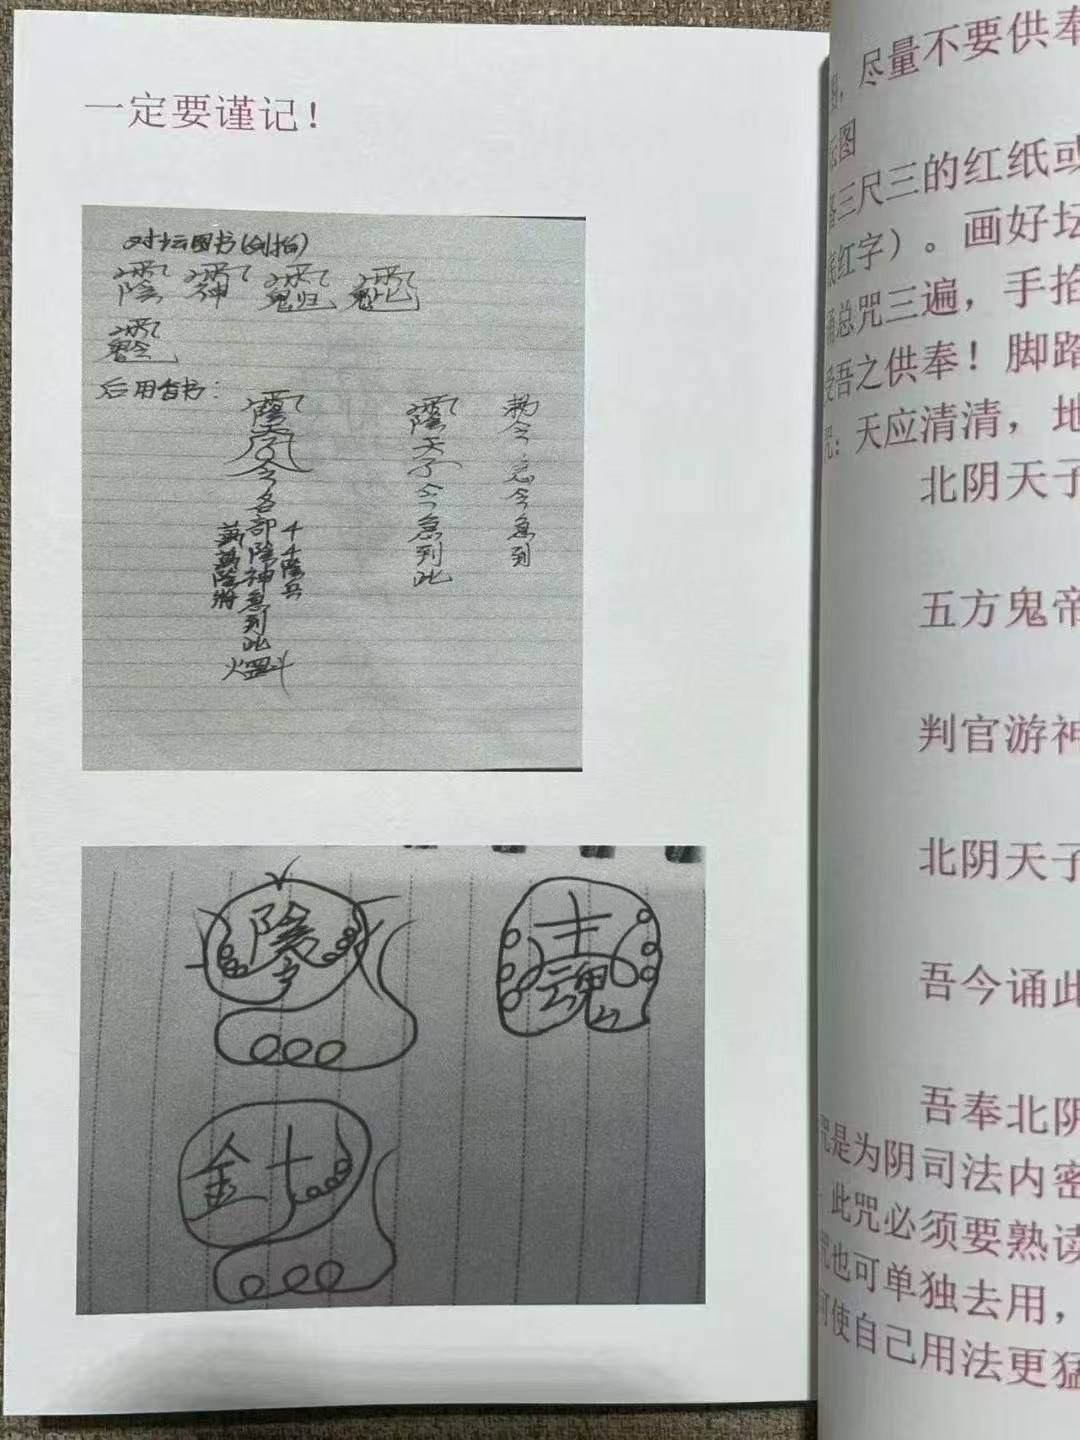 一定要谨记！
对坛图书(剑指)
后用香书：
天子令各部陰神急到此
千千陰兵
萬萬陰將
天子令急到此
勅令
急令急到
陰
士
魂
金
，尽量不要供奉
坛图
三尺三的红纸或
红字）。画好坛
总咒三遍，手掐
受吾之供奉！脚踏
咒：天应清清，地
北阴天子
五方鬼帝
判官游神
北阴天子
吾今诵此
吾奉北阴
咒是为阴司法内密
此咒必须要熟读
咒也可单独去用，
可使自己用法更猛